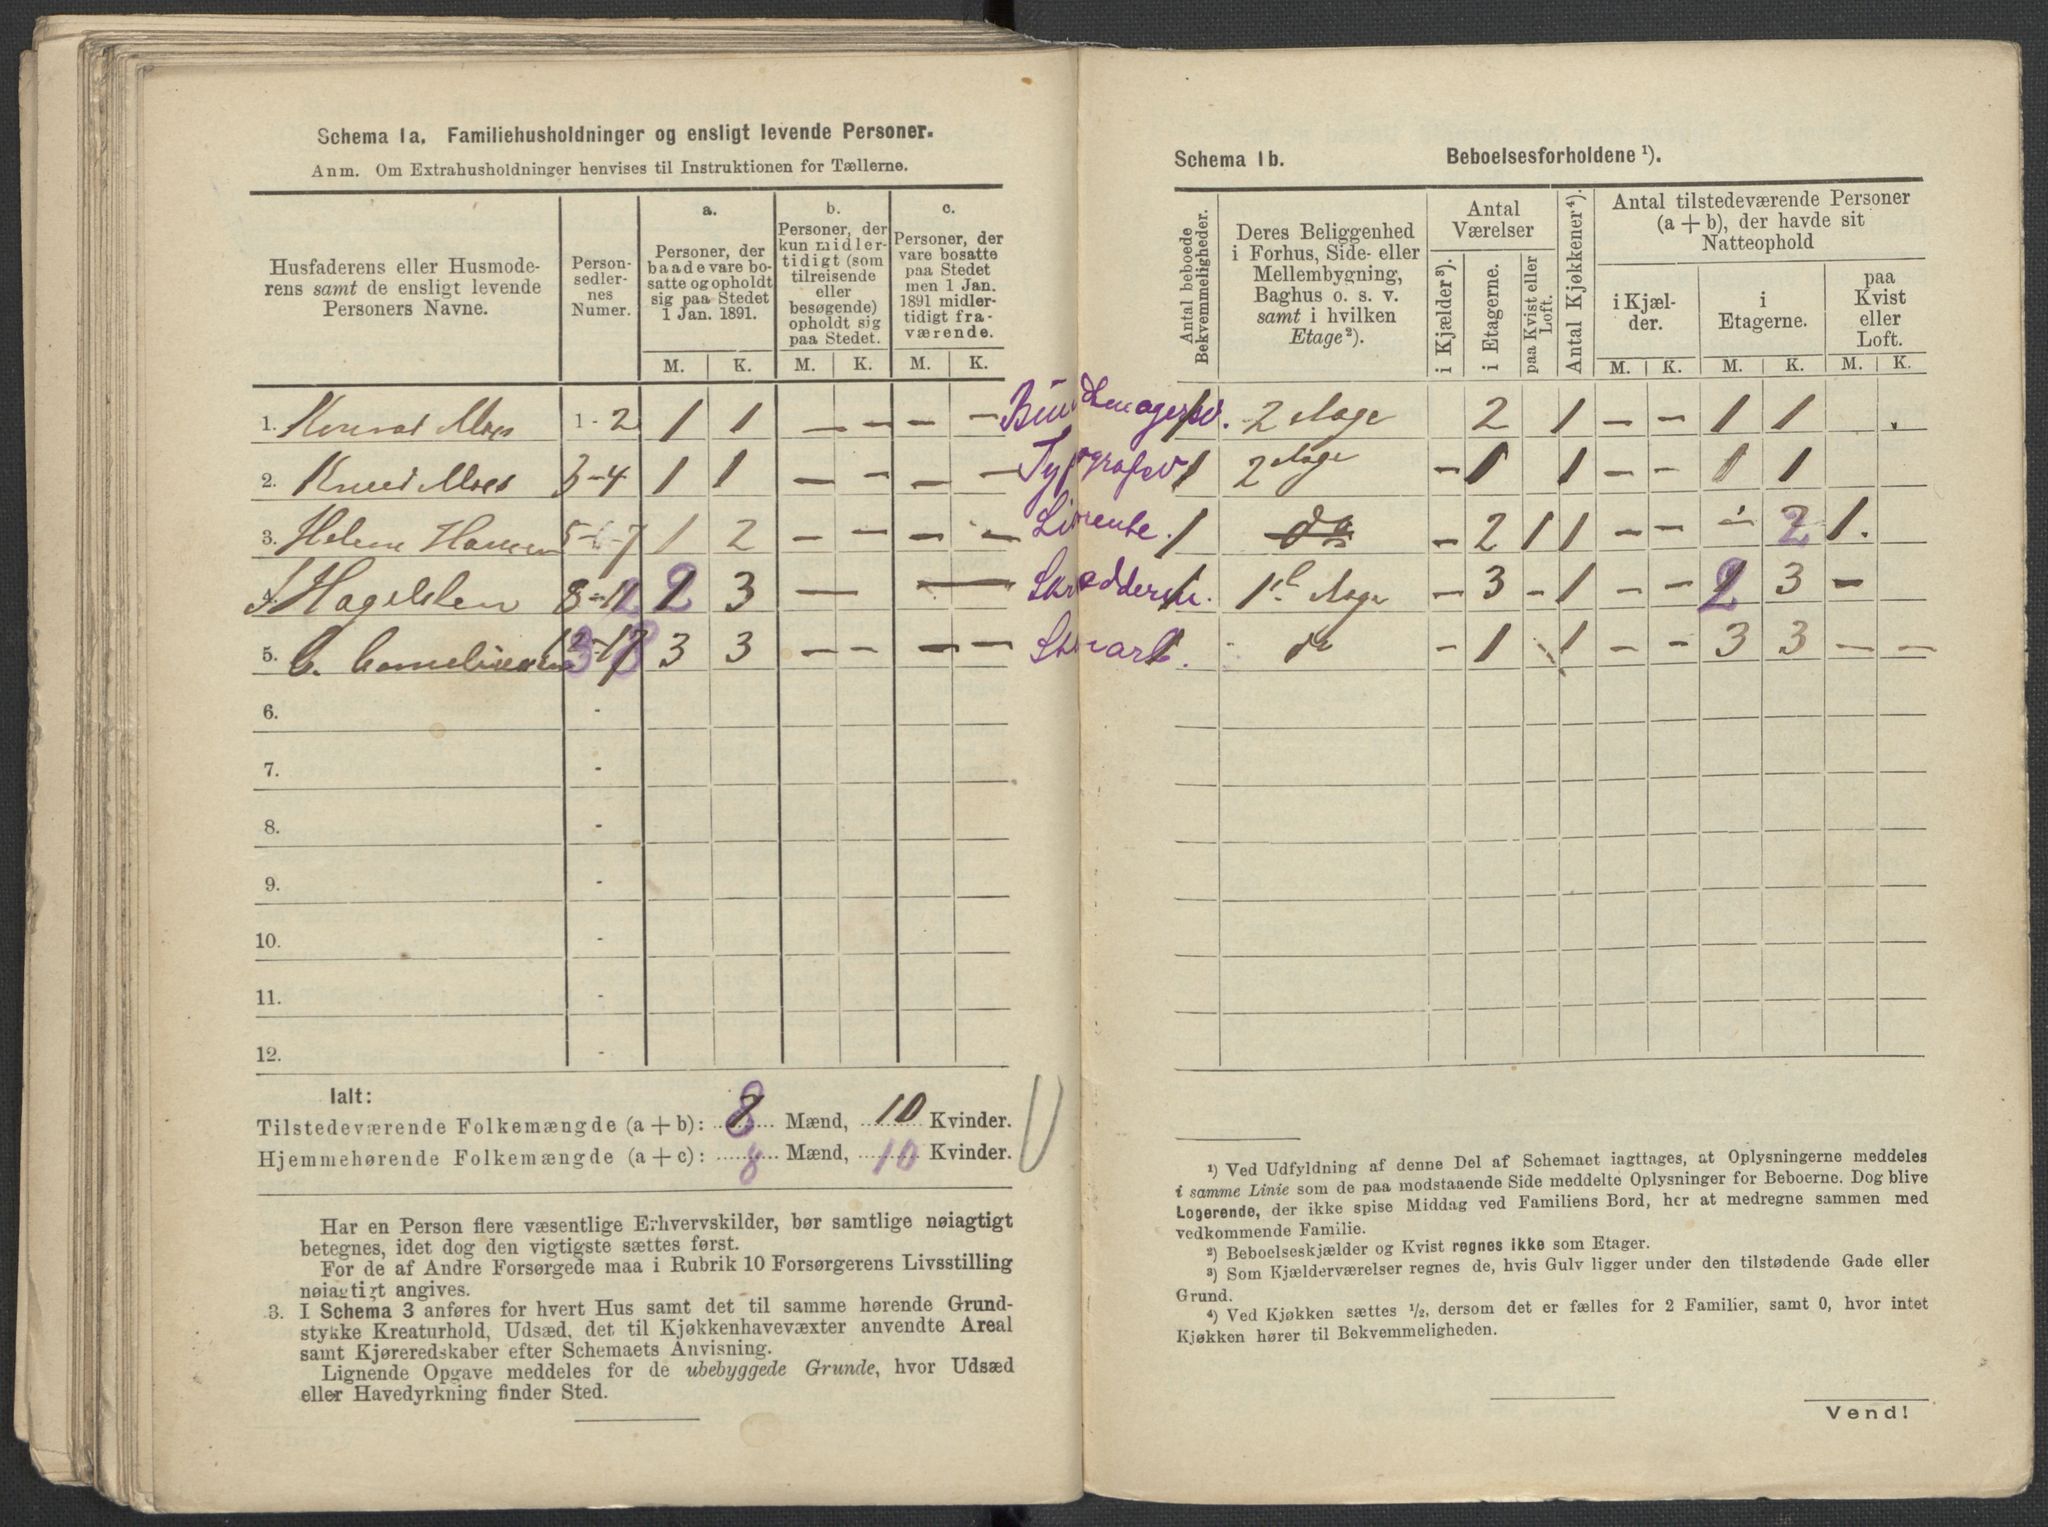 Schema 1a. Familiehusholdninger og ensligt levende Personer.
Anm. Om Extrahusholdninger henvises til Instruktionen for Tællerne.
Husfaderens eller Husmoderens samt de ensligt levende Personers Navne.
Personsedlernes Numer.
a. Personer, der baade vare bosatte og opholdt sig paa Stedet 1 Jan. 1891.
b. Personer, der kun midlertidigt (som tilreisende eller besøgende) opholdt sig paa Stedet.
c. Personer, der vare bosatte paa Stedet men 1 Jan. 1891 midlertidigt fraværende.
M. K. M. K. M. K.
1. Konrad Moes 1-2 1 1 — — — —
2. Knud Moes 3-4 1 1 — — — —
3. Helene Hansen 5-6-7 1 2 — — — —
4. Hagelsten 8-12 2 3 — —
5. C. Corneliussen 13-18 3 3 — — — —
6. -
7. -
8. -
9. -
10. -
11. -
12. -
Ialt:
Tilstedeværende Folkemængde (a + b): 8 Mænd, 10 Kvinder.
Hjemmehørende Folkemængde (a + c): 8 Mænd, 10 Kvinder.
Har en Person flere væsentlige Erhvervskilder, bør samtlige nøiagtigt
betegnes, idet dog den vigtigste sættes først.
For de af Andre Forsørgede maa i Rubrik 10 Forsørgerens Livsstilling
nøiagtigt angives.
3. I Schema 3 anføres for hvert Hus samt det til samme hørende Grund-
stykke Kreaturhold, Udsæd, det til Kjøkkenhavevæxter anvendte Areal
samt Kjøreredskaber efter Schemaets Anvisning.
Lignende Opgave meddeles for de ubebyggede Grunde, hvor Udsæd
eller Havedyrkning finder Sted.
Schema 1b. Beboelsesforholdene ¹).
Antal beboede Bekvemmeligheder.
Deres Beliggenhed i Forhus, Side- eller Mellembygning, Baghus o. s. v. samt i hvilken Etage²).
Antal Værelser
i Kjælder³).
i Etagerne.
paa Kvist eller Loft.
Antal Kjøkkener⁴).
Antal tilstedeværende Personer (a + b), der havde sit Natteophold
i Kjælder.
i Etagerne.
paa Kvist eller Loft.
M. K. M. K. M. K.
1 2 Etage 2 1 — — 1 1
Typograf 1 2 Etage — 1 1 — — 1 1
Livrente. 1 do — 2 1 1 — — — 2 1.
1 1ste Etage — 3 - 1 — — 2 3 —
1 do — 1 1 — — 3 3 — —
¹) Ved Udfyldning af denne Del af Schemaet iagttages, at Oplysningerne meddeles
i samme Linie som de paa modstaaende Side meddelte Oplysninger for Beboerne. Dog blive
Logerende, der ikke spise Middag ved Familiens Bord, her at medregne sammen med
vedkommende Familie.
²) Beboelseskjælder og Kvist regnes ikke som Etager.
³) Som Kjælderværelser regnes de, hvis Gulv ligger under den tilstødende Gade eller
Grund.
⁴) Ved Kjøkken sættes ½, dersom det er fælles for 2 Familier, samt 0, hvor intet
Kjøkken hører til Bekvemmeligheden.
Vend!